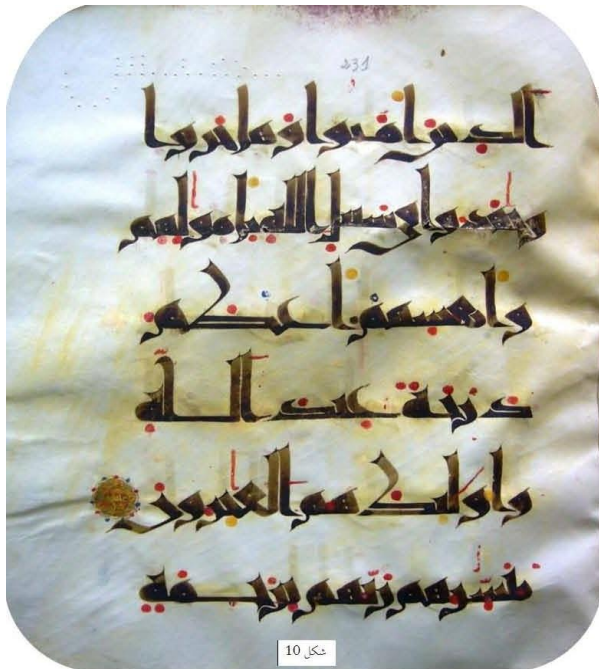 231
الذين امنوا وهاجروا
وجهدوا في سبيل الله بامولهم
وانفسهم اعظم
درجة عند الله
واولئك هم الفئزون
يبشرهم ربهم برحمة
شكل 10